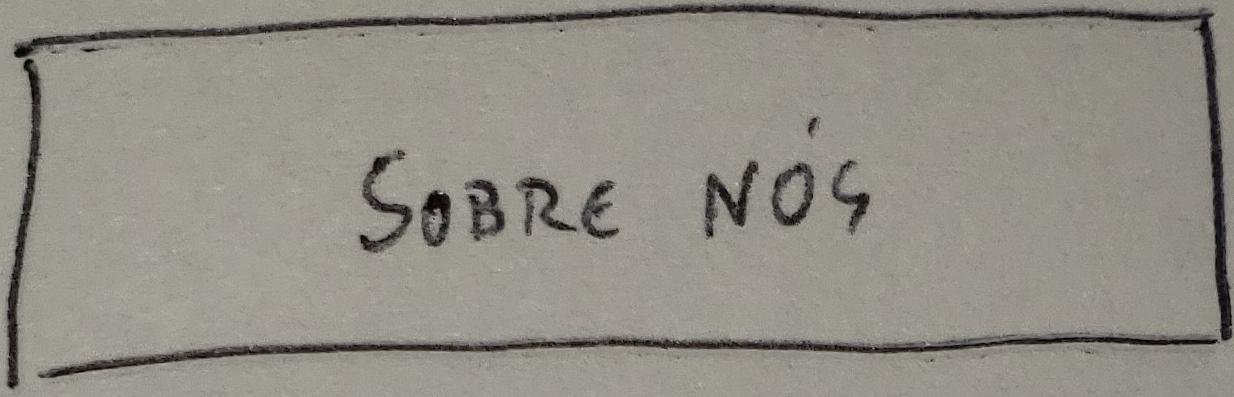 SOBRE NÓS